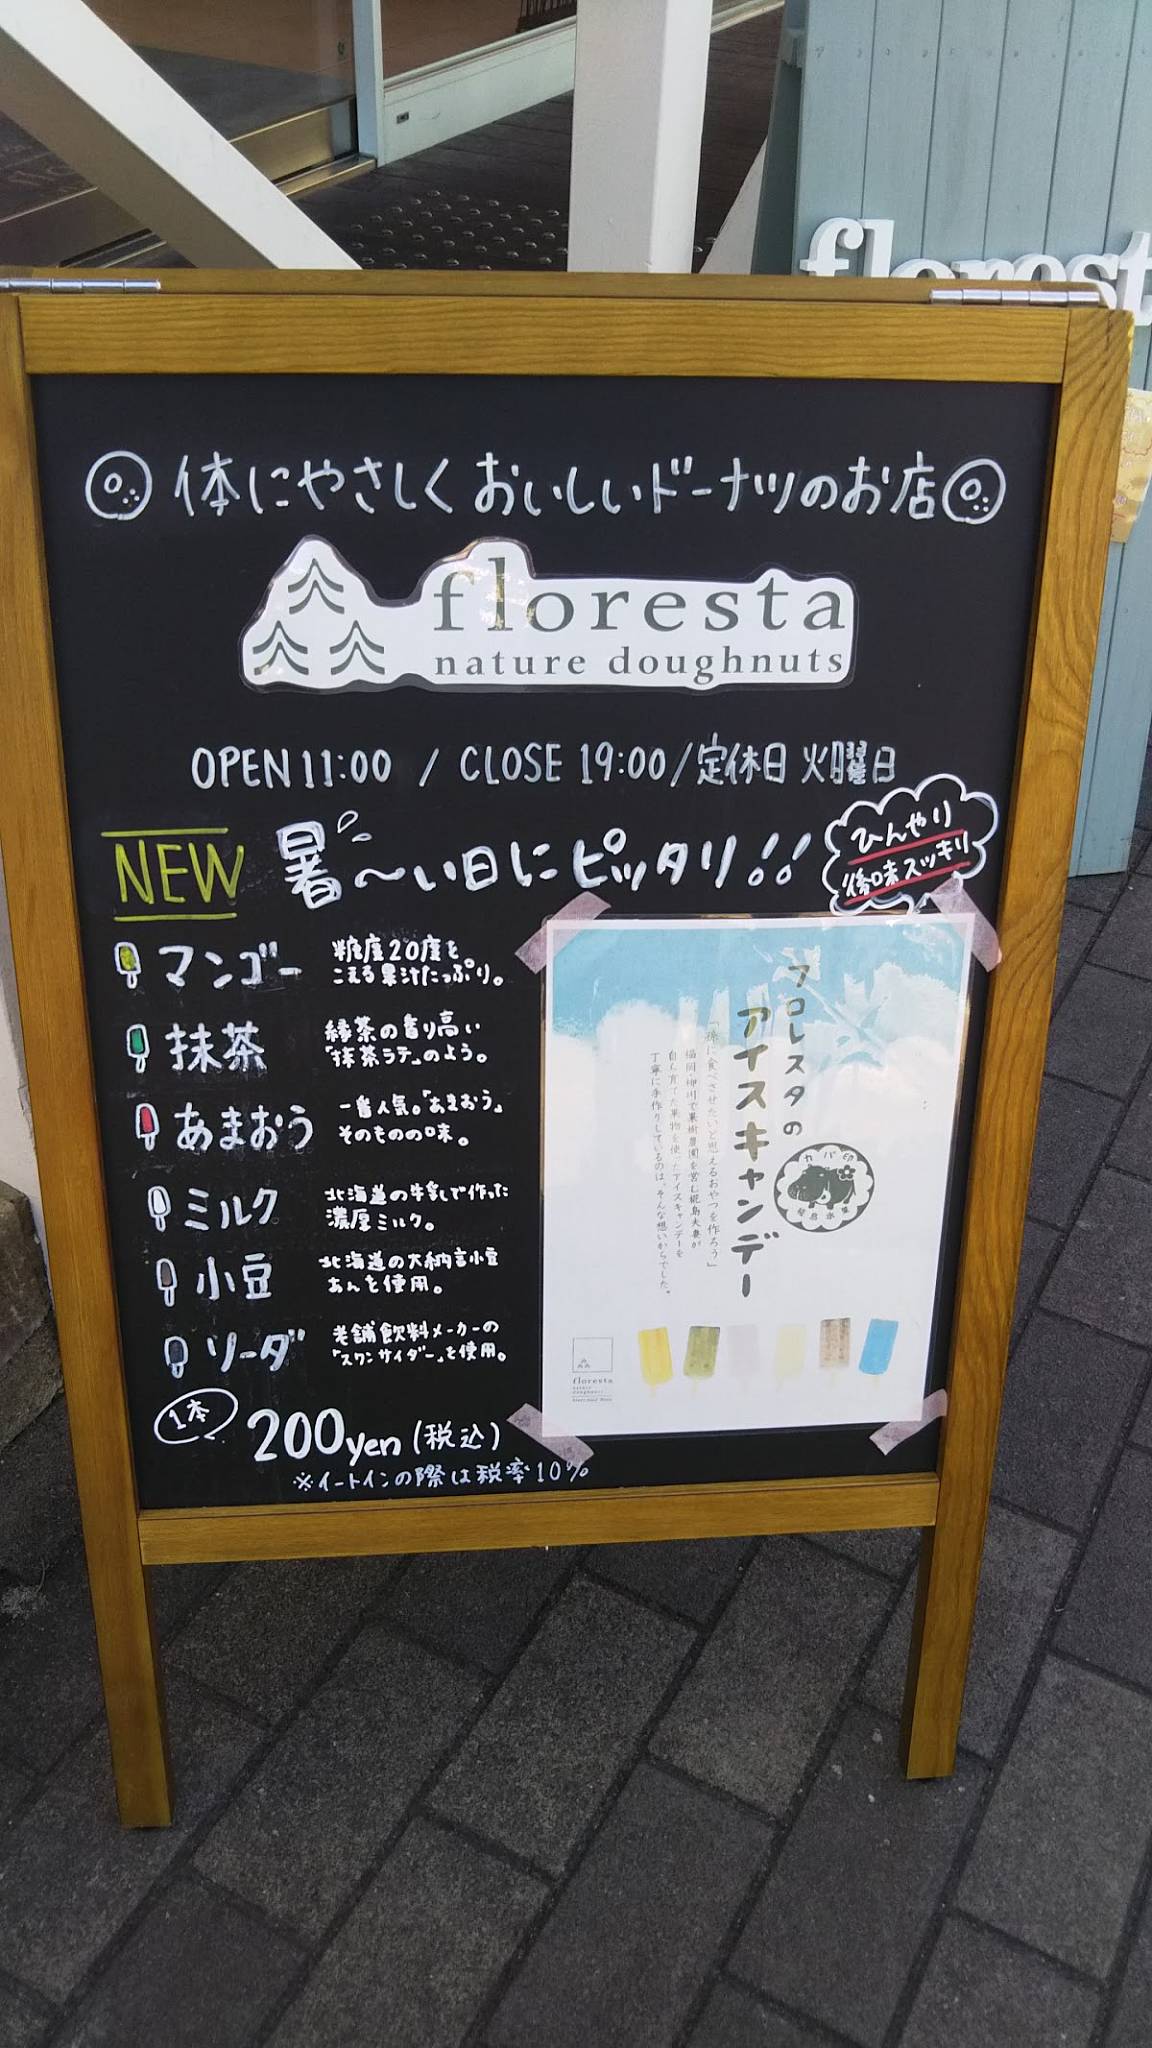 florest
体にやさしく おいしいドーナツのお店
floresta
nature doughnuts
OPEN 11:00 / CLOSE 19:00/定休日 火曜日
NEW 暑〜い日にピッタリ!!
ひんやり
後味スッキリ
マンゴー 糖度20度を
こえる果汁たっぷり。
抹茶 緑茶の香り高い
「抹茶ラテ」のよう。
あまおう 一番人気。「あまおう」
そのものの味。
ミルク 北海道の牛乳で作った
濃厚ミルク。
小豆 北海道の大納言小豆
あんを使用。
ソーダ 老舗飲料メーカーの
「スワンサイダー」を使用。
1本 200yen(税込)
※イートインの際は税率10%
フロレスタの
アイスキャンデー
カバ印
「孫に食べさせたいと思えるおやつを作ろう」
福岡・柳川で果樹農園を営む椛島夫妻が
自ら育てた果物を使ったアイスキャンデーを
丁寧に手作りしているのは、そんな想いからでした。
floresta
nature
doughnuts